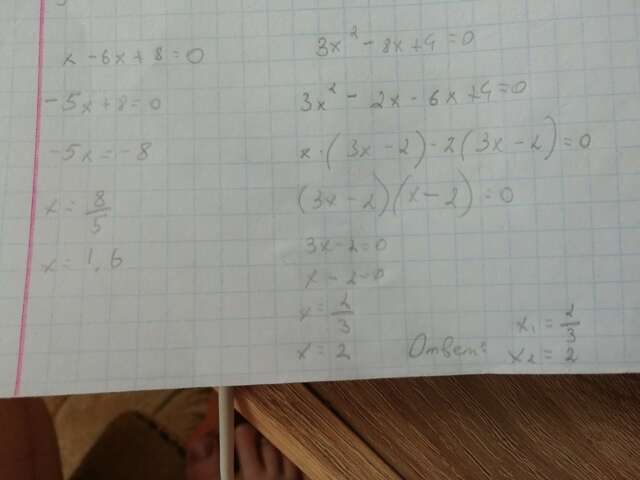 x - 6x + 8 = 0
-5x + 8 = 0
-5x = -8
x = 8/5
x = 1,6
3x² - 8x + 4 = 0
3x² - 2x - 6x + 4 = 0
x · (3x - 2) - 2(3x - 2) = 0
(3x - 2)(x - 2) = 0
3x - 2 = 0
x - 2 = 0
x = 2/3
x = 2
Ответ: x₁ = 2/3
x₂ = 2